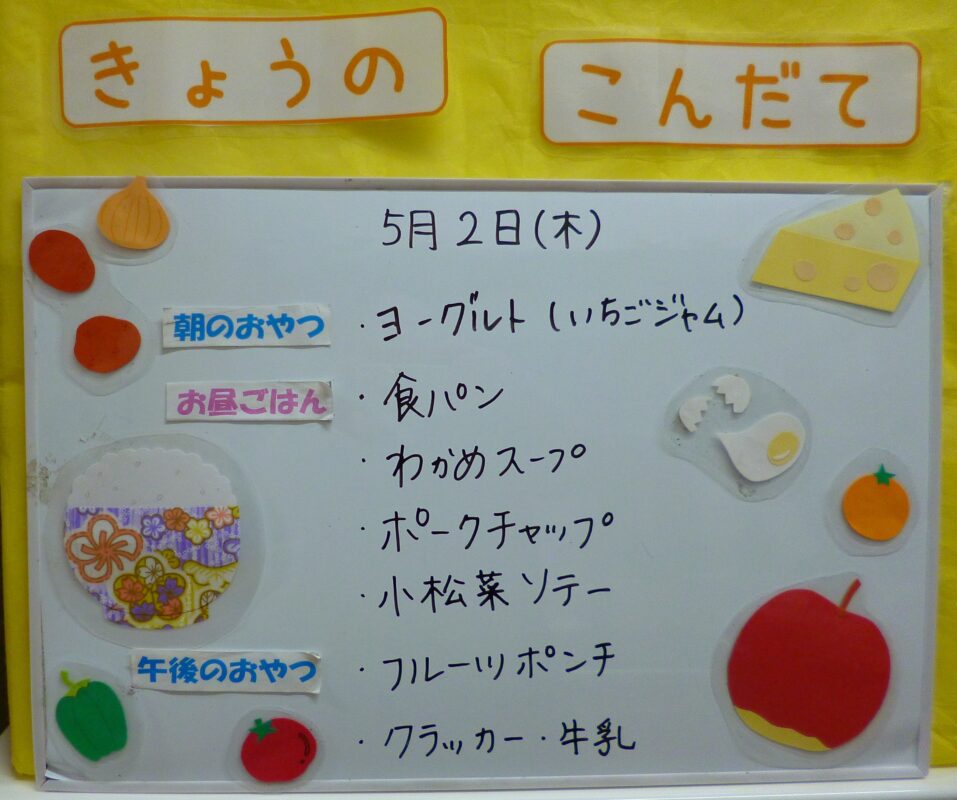 きょうの こんだて
5月2日(木)
朝のおやつ ・ヨーグルト(いちごジャム)
お昼ごはん ・食パン
・わかめスープ
・ポークチャップ
・小松菜ソテー
午後のおやつ ・フルーツポンチ
・クラッカー・牛乳